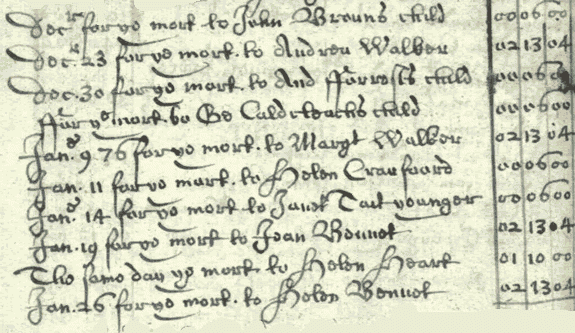 Decr for ye mort to John Brouns child 00 06 00
Decr. 23 for ye mort. to Andrew Walker 02 13 04
Decr. 30 for ye mort. to And fforrests child 00 06 00
ffor ye mort. to Ge Calderheads child 00 06 00
Jan. 9 76 for ye mort. to Margt Walker 02 13 04
Jan. 11 for ye mort. to Helen Craufoord 00 06 00
Jan. 14 for ye mort to Janet Tait younger 00 06 00
Jan. 19 for ye mort to Jean Bennet 02 13 04
The same day ye mort to Helen Heart 01 10 00
Jan. 26 for ye mort. to Helen Bennet 02 13 04